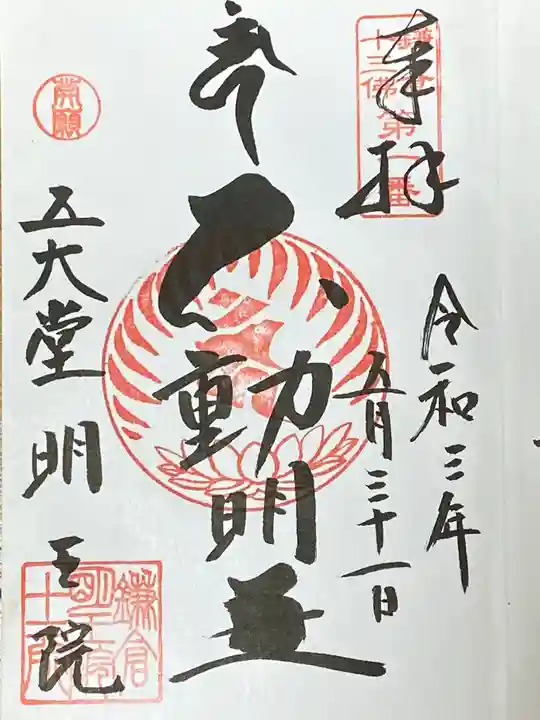 奉拝
鎌倉
十三佛第一番
令和三年
五月三十一日
不動明王
五大堂明王院